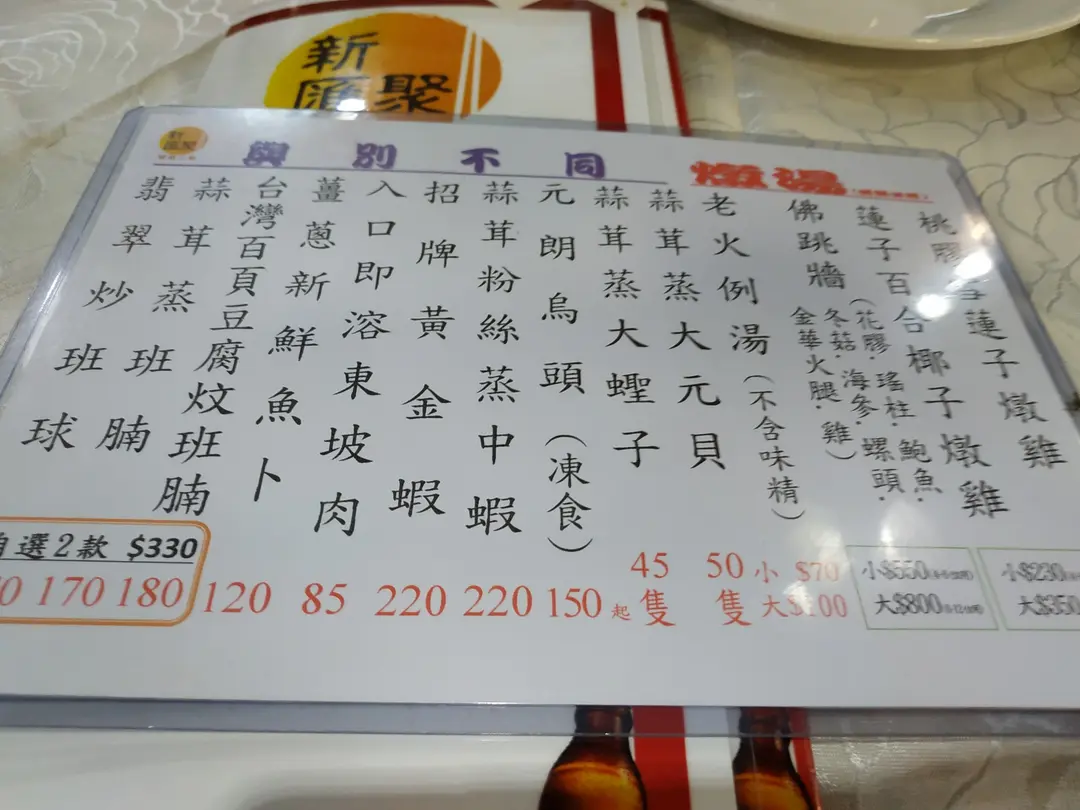 新
匯聚
新
匯聚
與別不同
燉湯
桃膠雪蓮子燉雞
蓮子百合椰子燉雞
佛跳牆
(花膠·瑤柱·鮑魚·
冬菇·海參·螺頭·
金華火腿·雞)
老火例湯(不含味精)
蒜茸蒸大元貝
蒜茸蒸大蟶子
元朗烏頭(凍食)
蒜茸粉絲蒸中蝦
招牌黃金蝦
入口即溶東坡肉
薑蔥新鮮魚卜
台灣百頁豆腐炆班腩
蒜茸蒸班腩
翡翠炒班球
自選2款 $330
170
180
120
85
220
220
150起
45隻
50隻
小 $70
大$100
小$550
大$800
小$230
大$350